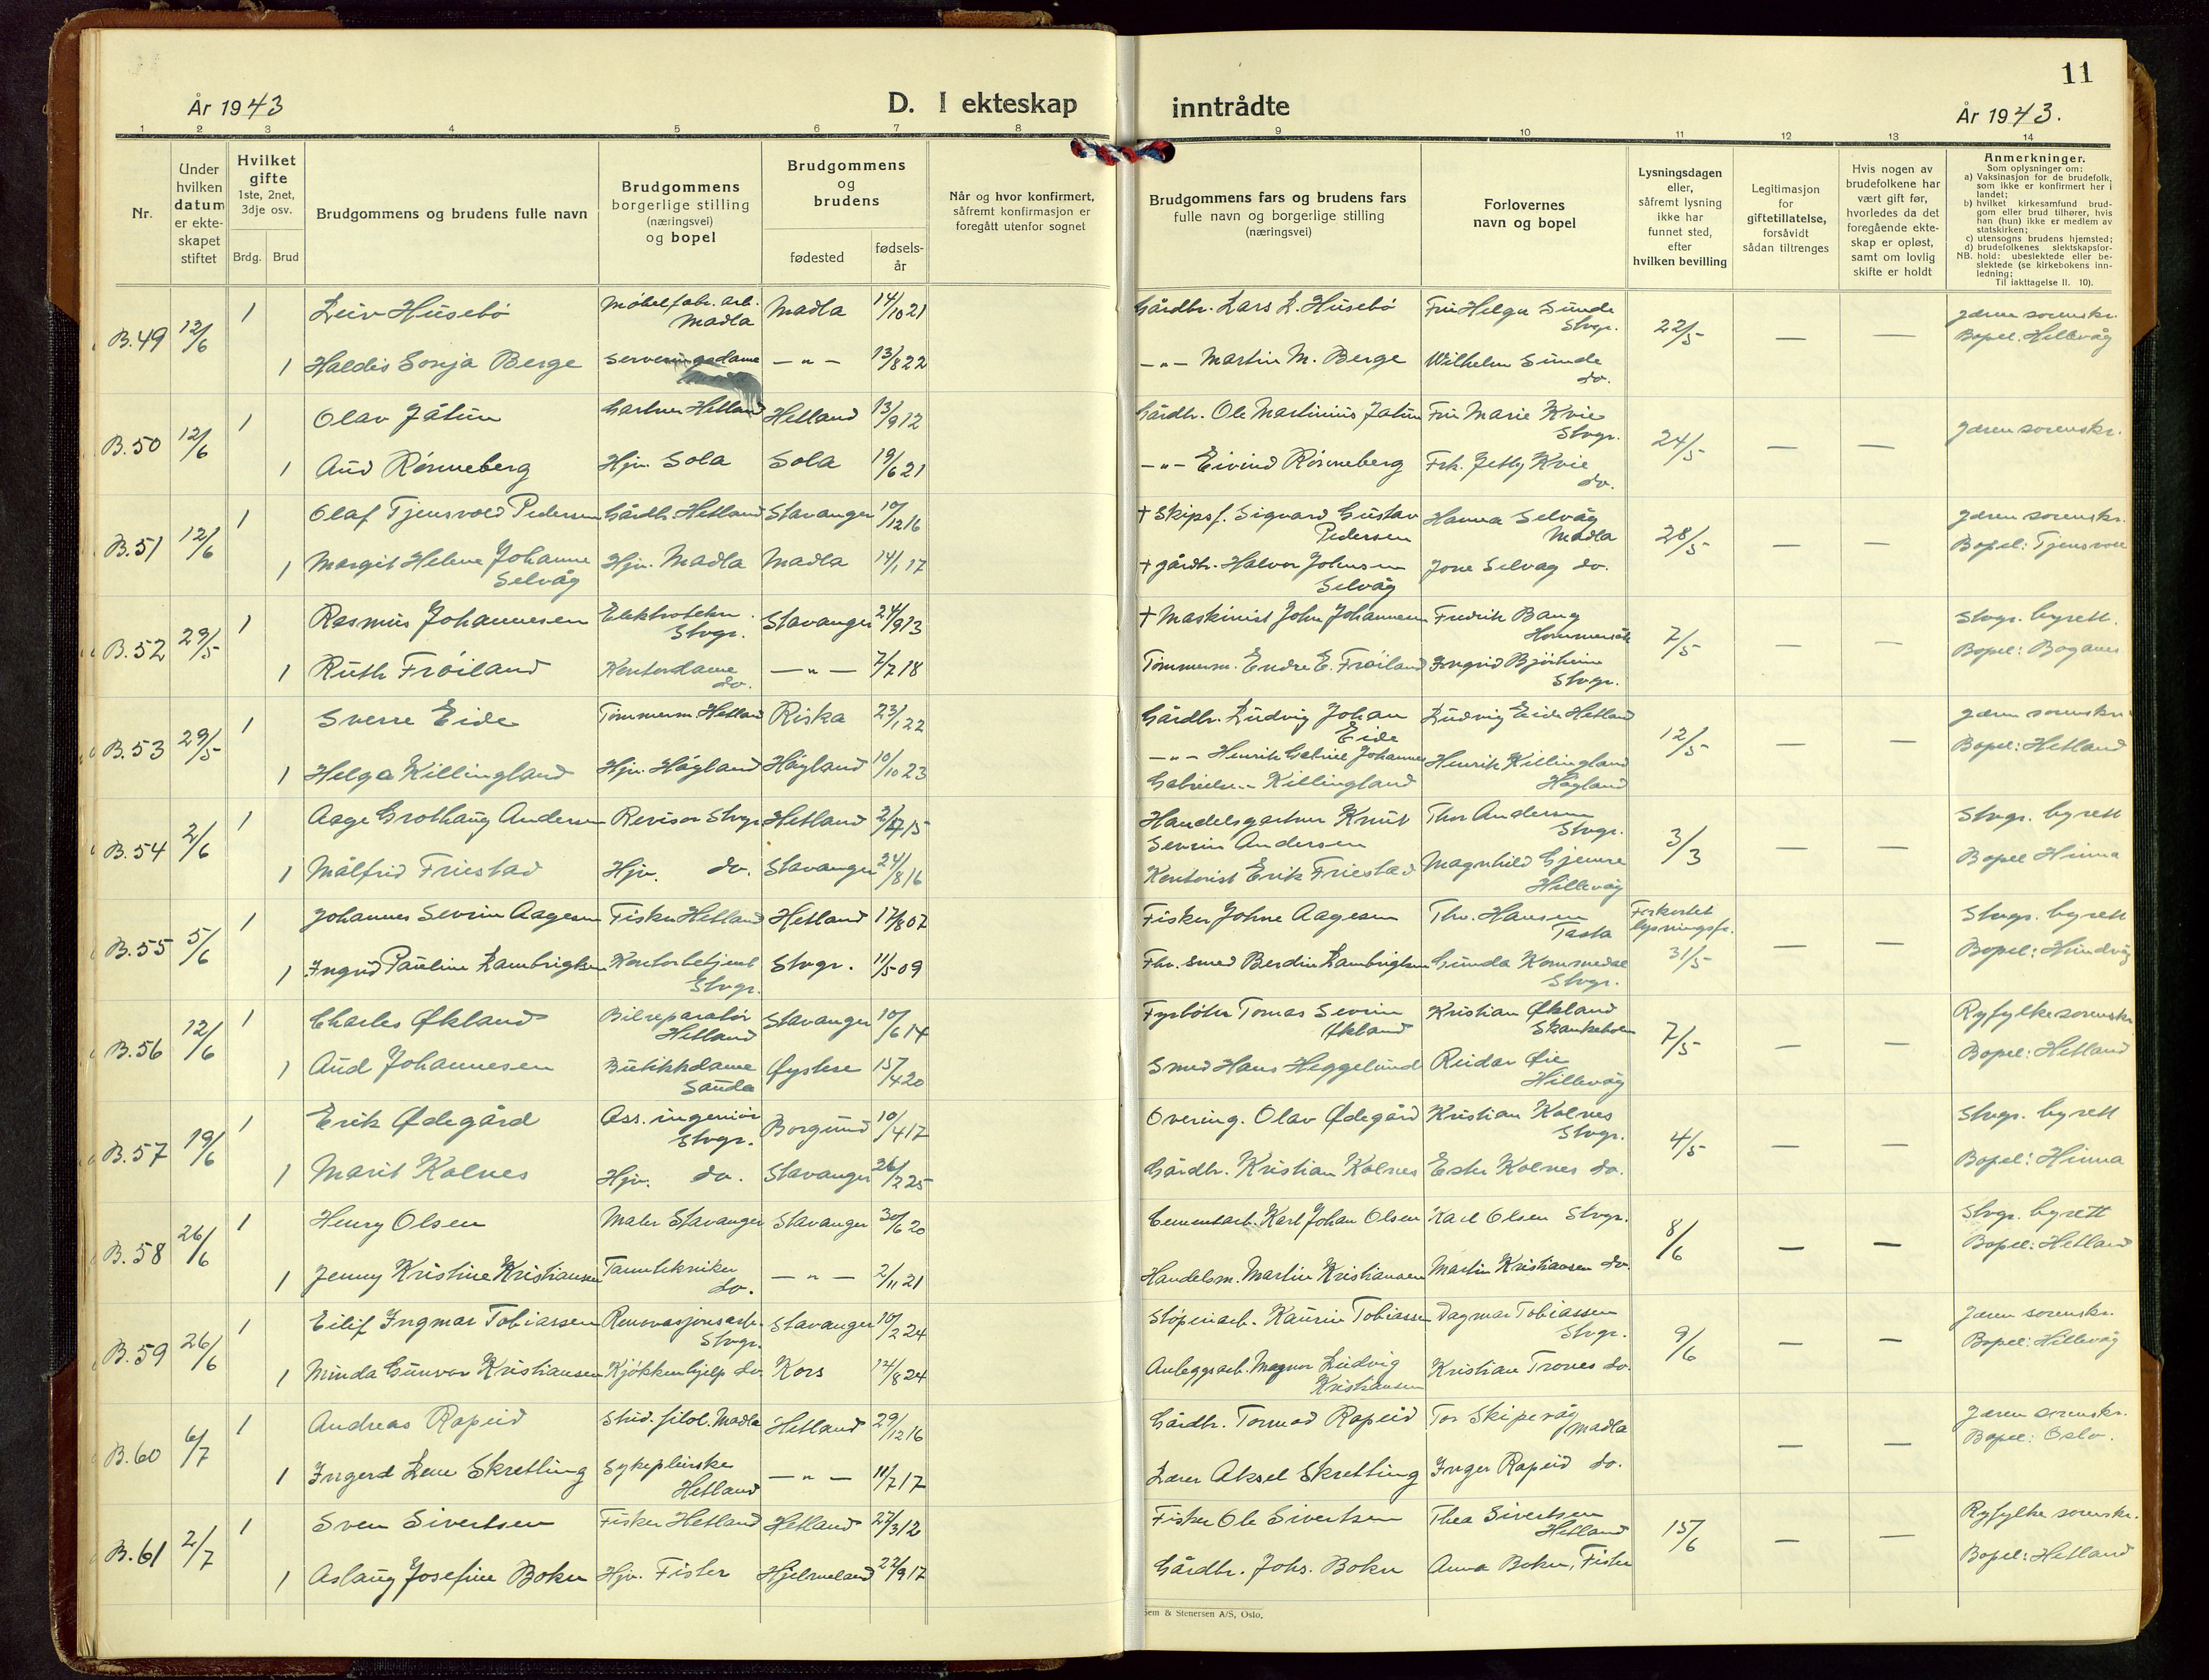 11
År 1943
D. I ekteskap
inntrådte
År 1943.
1 2 3 4 5 6 7 8 9 10 11 12 13 14
Nr.
Under hvilken datum er ekte- skapet stiftet
Hvilket gifte 1ste, 2net, 3dje osv.
Brdg. Brud
Brudgommens og brudens fulle navn
Brudgommens borgerlige stilling (næringsvei) og bopel
Brudgommens og brudens
fødested
fødsels- år
Når og hvor konfirmert, såfremt konfirmasjon er foregått utenfor sognet
Brudgommens fars og brudens fars fulle navn og borgerlige stilling (næringsvei)
Forlovernes navn og bopel
Lysningsdagen eller, såfremt lysning ikke har funnet sted, efter hvilken bevilling
Legitimasjon for giftetillatelse, forsåvidt sådan tiltrenges
Hvis nogen av brudefolkene har vært gift før, hvorledes da det foregående ekte- skap er opløst, samt om lovlig skifte er holdt
Anmerkninger.
Som oplysninger om:
a) Vaksinasjon for de brudefolk, som ikke er konfirmert her i landet;
b) hvilket kirkesamfund brud- gom eller brud tilhører, hvis han (hun) ikke er medlem av statskirken;
c) utensogns brudens hjemsted;
d) brudefolkenes slektskapsfor-
NB. hold: ubeslektede eller be- slektede (se kirkebokens inn- ledning;
Til iakttagelse II. 10).
B.49 12/6 1 Leiv Husebø Møbelfabr. arb. Madla Madla 14/10 21 Gårdbr. Lars L. Husebø Fru Helga Sunde Stvgr. 22/5 — — Jæren sorenskr. Bopel. Hillevåg
1 Haldis Sonja Berge Serveringsdame — " — 13/8 22 — " — Martin M. Berge Wilhelm Sunde do.
B.50 12/6 1 Olav Jåtun Gartner Hetland Hetland 13/9 12 Gårdbr. Ole Martinius Jåtun Fru Marie Kvie Stvgr. 24/5 — — Jæren sorenskr.
1 Aud Rønneberg Hjv. Sola Sola 19/6 21 — " — Eivind Rønneberg Frk. Jetly Kvie do.
B.51 12/6 1 Olaf Tjensvold Pedersen Gårdb. Hetland Stavanger 10/12 16 † Skipsf. Sigvard Gustav Pedersen Hanna Selvåg Madla 28/5 — — Jæren sorenskr. Bopel: Tjensvoll
1 Margit Helene Johanne Selvåg Hjv. Madla Madla 14/1 17 † gårdb. Halvor Johnsen Selvåg Jone Selvåg do.
B.52 29/5 1 Rasmus Johannesen Elektrotekn. Stvgr. Stavanger 24/9 13 † Maskinist John Johannesen Fredrik Bang Hommersåk 7/5 — — Stvgr. byrett. Bopel: Boganes
1 Ruth Frøiland Kontordame do. — " — 7/7 18 Tømmerm. Endre E. Frøiland Ingrid Bjørheim Stvgr.
B.53 29/5 1 Sverre Eide Tømmerm. Hetland Riska 23/1 22 Gårdbr. Ludvig Johan Eide Ludvig Eide Hetland 12/5 — — Jæren sorenskr. Bopel: Hetland
1 Helga Killingland Hjv. Høyland Høyland 10/10 23 — " — Henrik Gabriel Johannes Gabrielsen Killingland Henrik Killingland Høyland
B.54 2/6 1 Aage Grothaug Andersen Revisor Stvgr. Hetland 15 Handelsgartner Knut Sevrin Andersen Thor Andersen Stvgr. 3/3 — — Stvgr. byrett Bopel Hinna
1 Målfrid Friestad Hjv. do. Stavanger 24/8 16 Kontorist Erik Friestad Magnhild Gjemre Hillevåg
B.55 5/6 1 Johannes Sevrin Aagesen Fisker Hetland Hetland 17/8 07 Fisker Johne Aagesen Thv. Hansen Tasta Forkortet lysningsfr. 31/5 — — Stvgr. byrett Bopel: Hundvåg
1 Ingrid Pauline Lambrigtsen Kontorbetjent Stvgr. Stvgr. 11/5 09 Fhv. smed Berdin Lambrigtsen Gunda Kommedal Stvgr.
B.56 12/6 1 Charles Økland Bilreparatør Hetland Stavanger 10/6 14 Fyrbøter Tomas Sevrin Økland Kristian Økland Skankeholm 7/5 — — Ryfylke sorenskr. Bopel: Hetland
1 Aud Johannesen Butikkdame Sauda Øystese 15/4 20 Smed Hans Heggelund Reidar Øie Hillevåg
B.57 19/6 1 Erik Ødegård Ass. ingeniør Stvgr. Borgund 10/4 17 Overing. Olav Ødegård Kristian Kolnes Stvgr. 4/5 — — Stvgr. byrett Bopel: Hinna
1 Marit Kolnes Hjv. do. Stavanger 26/2 25 Gårdbr. Kristian Kolnes Ester Kolnes do.
B.58 26/6 1 Henry Olsen Maler Stavanger Stavanger 30/6 20 Cementarb. Karl Johan Olsen Karl Olsen Stvgr. 8/6 — — Stvgr. byrett Bopel: Hetland
1 Jenny Kristine Kristiansen Tanntekniker do. — " — 2/11 21 Handelsm. Martin Kristiansen Martin Kristiansen do.
B.59 26/6 1 Eilif Ingmar Tobiassen Renovasjonsarb. Stvgr. Stavanger 10/2 24 Støperiarb. Kaurin Tobiassen Dagmar Tobiassen Stvgr. 9/6 — — Jæren sorenskr. Bopel: Hillevåg
1 Minda Gunvor Kristiansen Kjøkkenhjelp do. Kors 14/8 24 Anleggsarb. Magnor Ludvig Kristiansen Kristian Trones do.
B.60 6/7 1 Andreas Rapeid Stud. filol. Madla Hetland 29/12 16 Gårdbr. Tormod Rapeid Tor Skipevåg Madla — — Jæren sorenskr. Bopel: Oslo.
1 Ingerd Lene Skretting Sykepleierske Hetland — " — 11/7 17 Lærer Aksel Skretting Inger Rapeid do.
B.61 2/7 1 Sven Sivertsen Fisker Hetland Hetland 27/3 12 Fisker Ole Sivertsen Thea Sivertsen Hetland 15/6 — — Ryfylke sorenskr. Bopel: Hetland
1 Aslaug Josefine Bokn Hjv. Fister Hjelmeland 22/9 17 Gårdbr. Johs. Bokn Anna Bokn, Fister
Sem & Stenersen A/S, Oslo.